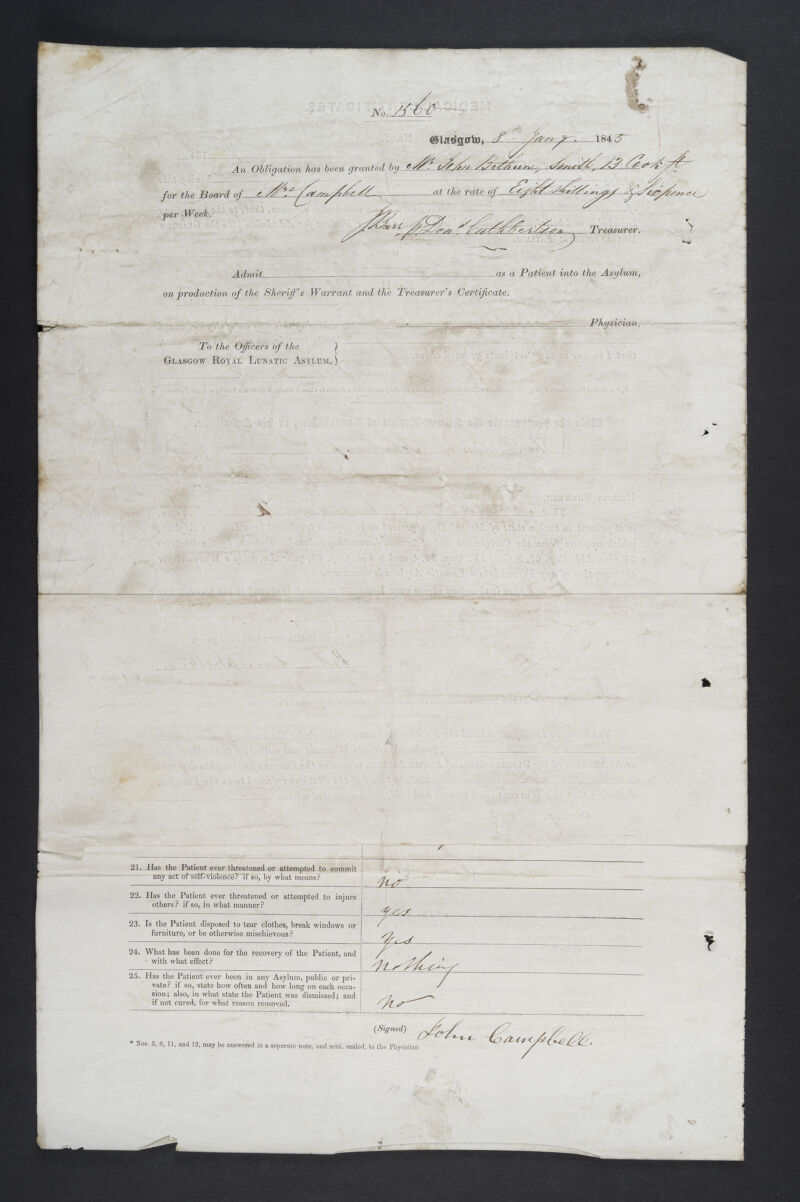 No. 1560
Glasgow, 8th Jany. 1845
An Obligation has been granted by Mr. John Bethune, Smith, 13 Cook St
for the Board of Mrs. Campbell at the rate of Eight Shillings & Sixpence
per Week.
J Barr p. Don.d Cuthbertson Treasurer.
Admit as a Patient into the Asylum,
on production of the Sheriff's Warrant and the Treasurer's Certificate.
Physician.
To the Officers of the
Glasgow Royal Lunatic Asylum.
21. Has the Patient ever threatened or attempted to commit
any act of self-violence? if so, by what means?
no
22. Has the Patient ever threatened or attempted to injure
others? if so, in what manner?
yes
23. Is the Patient disposed to tear clothes, break windows or
furniture, or be otherwise mischievous?
yes
24. What has been done for the recovery of the Patient, and
with what effect?
nothing
25. Has the Patient ever been in any Asylum, public or pri-
vate? if so, state how often and how long on each occa-
sion; also, in what state the Patient was dismissed; and
if not cured, for what reason removed.
no
(Signed) John Campbell
* Nos. 5, 6, 11, and 12, may be answered in a separate note, and sent, sealed, to the Physician